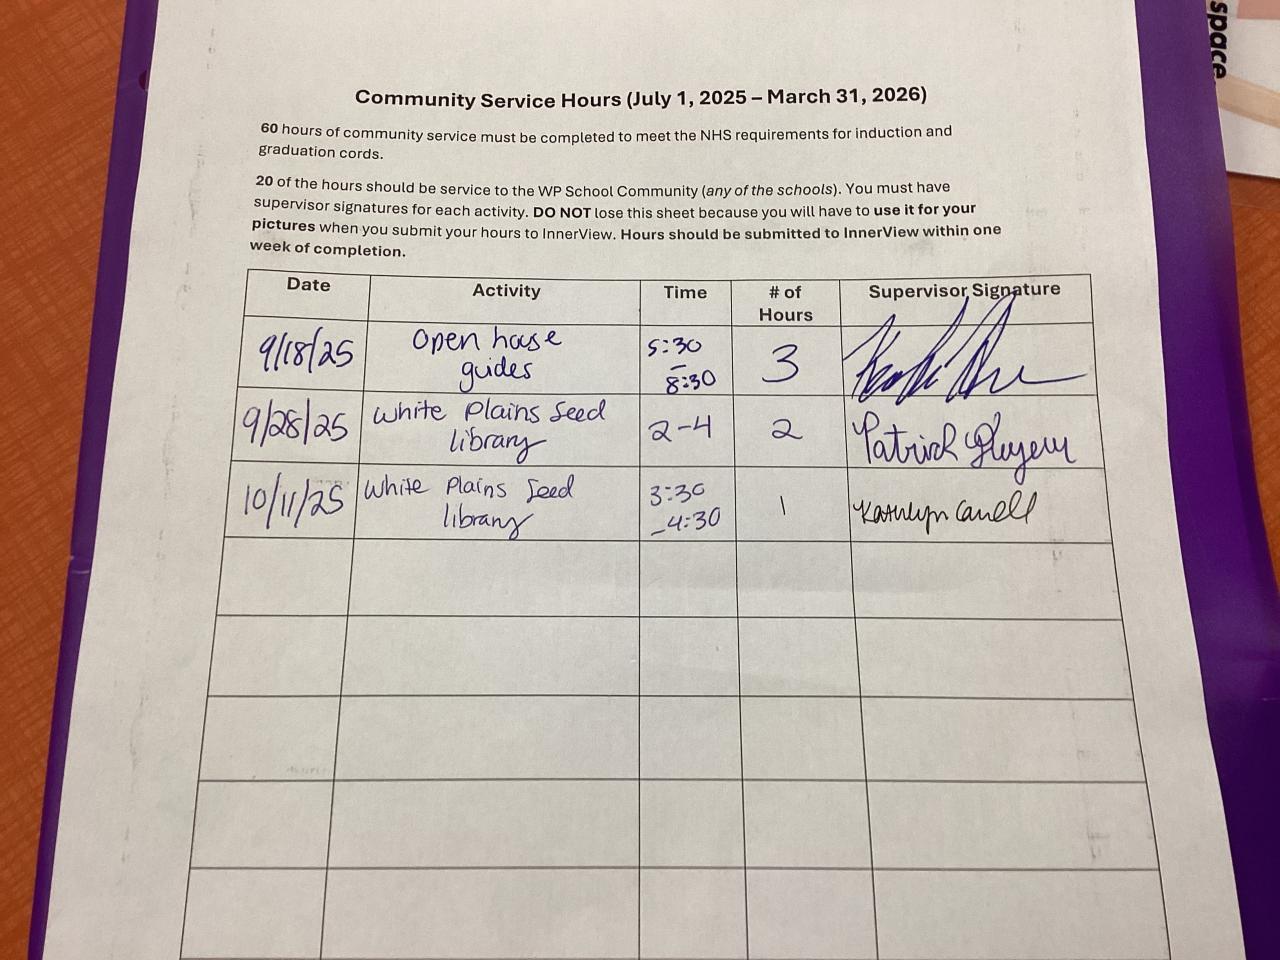 space
Community Service Hours (July 1, 2025 – March 31, 2026)
60 hours of community service must be completed to meet the NHS requirements for induction and
graduation cords.
20 of the hours should be service to the WP School Community (any of the schools). You must have
supervisor signatures for each activity. DO NOT lose this sheet because you will have to use it for your
pictures when you submit your hours to InnerView. Hours should be submitted to InnerView within one
week of completion.
Date Activity Time # of Hours Supervisor Signature
9/18/25
Open house
guides
5:30
–
8:30
3
9/28/25
White Plains Seed
library
2-4
2
Patrick
10/11/25
White Plains Seed
library
3:30
-4:30
1